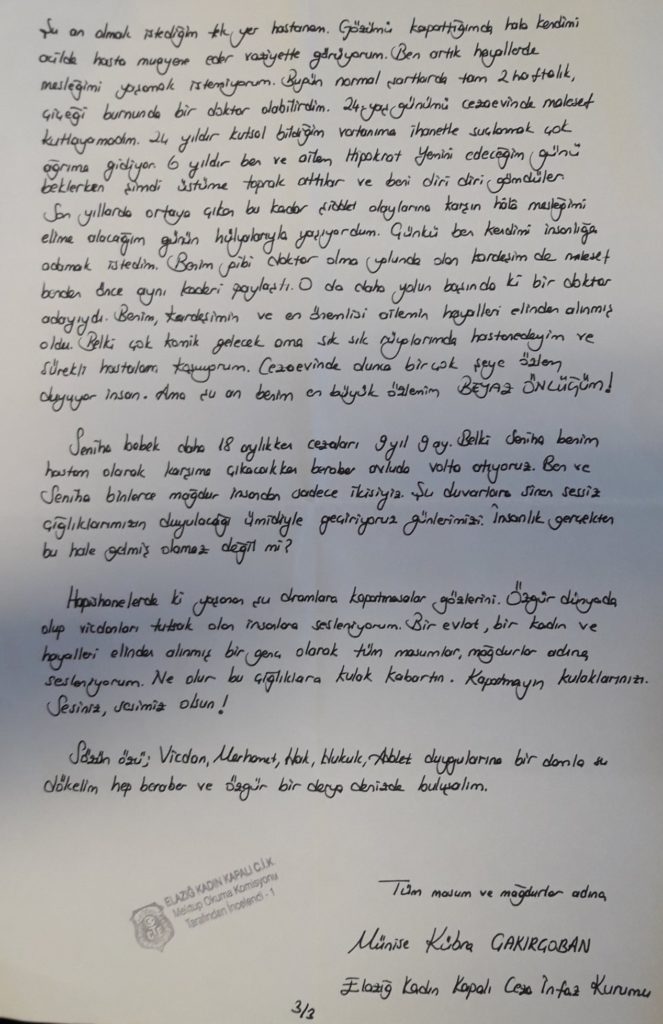 Şu an olmak istediğim tek yer hastanem. Gözümü kapattığımda hala kendimi
acilde hasta muayene eder vaziyette görüyorum. Ben artık hayallerde
mesleğimi yaşamak istemiyorum. Bugün normal şartlarda tam 2 haftalık,
çiçeği burnunda bir doktor olabilirdim. 24. yaş günümü cezaevinde malesef
kutlayamadım. 24 yıldır kutsal bildiğim vatanıma ihanetle suçlanmak çok
ağrıma gidiyor. 6 yıldır ben ve ailem Hipokrat Yemini edeceğim günü
beklerken şimdi üstüme toprak attılar ve beni diri diri gömdüler.
Son yıllarda ortaya çıkan bu kadar şiddet olaylarına karşın hâlâ mesleğimi
elime alacağım günün hülyalarıyla yaşıyordum. Çünkü ben kendimi insanlığa
adamak istedim. Benim gibi doktor olma yolunda olan kardeşim de malesef
benden önce aynı kaderi paylaştı. O da daha yolun başında ki bir doktor
adayıydı. Benim, kardeşimin ve en önemlisi ailemin hayalleri elinden alınmış
oldu. Belki çok komik gelecek ama sık sık rüyalarımda hastanedeyim ve
sürekli hastalara koşuyorum. Cezaevinde olunca bir çok şeye özlem
duyuyor insan. Ama şu an benim en büyük özlemim BEYAZ ÖNLÜĞÜM!
Seniha bebek daha 18 aylıkken cezaları 9 yıl 9 ay. Belki Seniha benim
hastam olarak karşıma çıkacakken beraber avluda volta atıyoruz. Ben ve
Seniha binlerce mağdur insandan sadece ikisiyiz. Şu duvarlara sinen sessiz
çığlıklarımızın duyulacağı ümidiyle geçiriyoruz günlerimizi. İnsanlık gerçekten
bu hale gelmiş olamaz değil mi?
Hapishanelerde ki yaşanan şu dramlara kapatmasalar gözlerini. Özgür dünyada
olup vicdanları tutsak olan insanlara sesleniyorum. Bir evlat, bir kadın ve
hayalleri elinden alınmış bir genç olarak tüm masumlar, mağdurlar adına
sesleniyorum. Ne olur bu çığlıklara kulak kabartın. Kapatmayın kulaklarınızı.
Sesiniz, sesimiz olsun!
Sözün özü; Vicdan, Merhamet, Hak, Hukuk, Adalet duygularına bir damla su
dökelim hep beraber ve özgür bir derya denizde buluşalım.
ELAZIĞ KADIN KAPALI C.İ.K.
Mektup Okuma Komisyonu
Tarafından İncelendi - 1
Tüm masum ve mağdurlar adına
Münise Kübra GAKIRGOBAN
Elazığ Kadın Kapalı Ceza İnfaz Kurumu
3/3